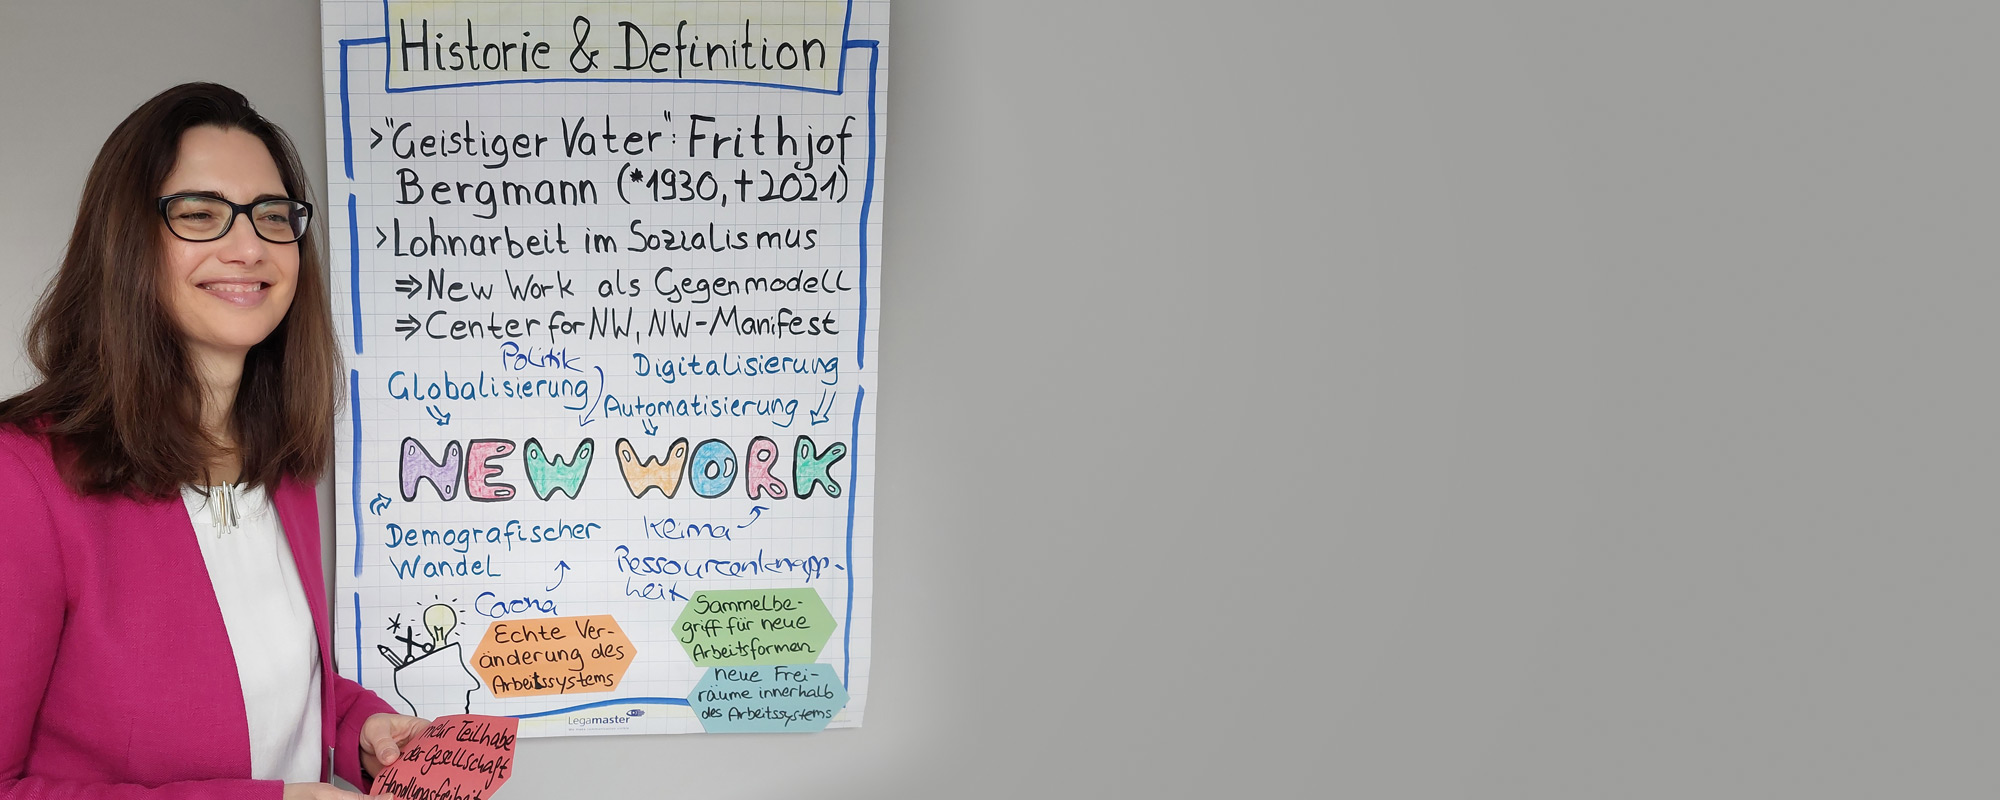 Historie & Definition
>"Geistiger Vater": Frithjof
Bergmann (*1930, †2021)
>Lohnarbeit im Sozialismus
⇒New Work als Gegenmodell
⇒Center for NW, NW-Manifest
Politik
Digitalisierung
Globalisierung
Automatisierung
NEW WORK
Demografischer
Wandel
Klima
Ressourcenknapp-
heit
Corona
Echte Ver-
änderung des
Arbeitssystems
Sammelbe-
griff für neue
Arbeitsformen
neue Frei-
räume innerhalb
des Arbeitssystems
Legamaster
mehr Teilhabe
der Gesellschaft
+Handlungsfreiheit